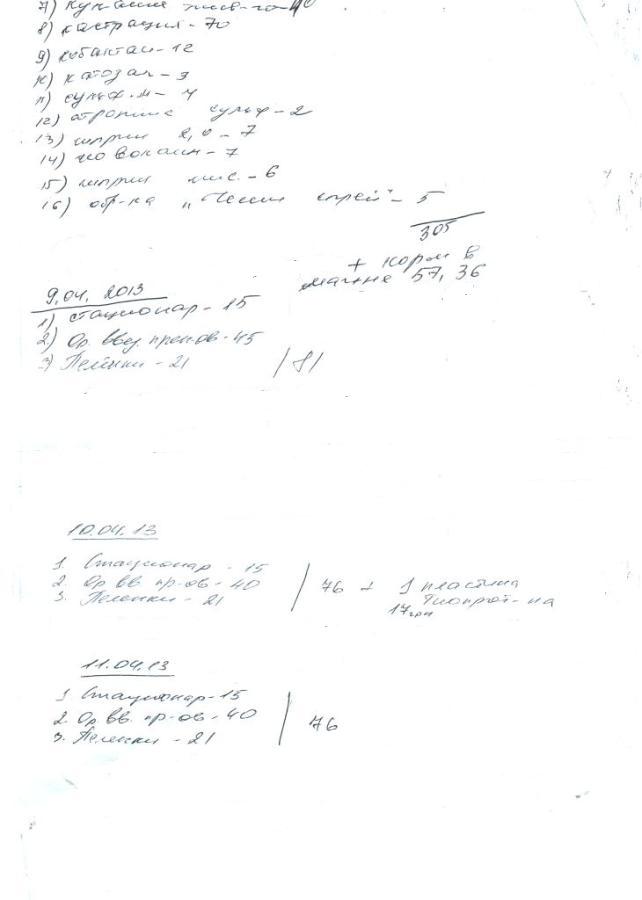 7) купание
8) кастрация - 70
9) кобактан - 12
10) катозал - 9
11) сульф. м - 4
12) атропина сульф - 2
13) шприц 2,0 - 7
14) новокаин - 7
15) шприц инс. - 6
16) обр-ка „Чеми спрей" - 5
305
+ корм в
магние 57,36
9.04.2013
1) Стационар - 15
2) Ор. введ. преп-ов - 45
3) Пелёнки - 21
/ 81
10.04.13
1. Стационар - 15
2. Ор вв. пр-ов - 40
3. Пеленки - 21
/ 76 + 1 пластина
Тиопрот-на
17 грн
11.04.13
1. Стационар - 15
2. Ор вв. пр-ов - 40
3. Пеленки - 21
/ 76